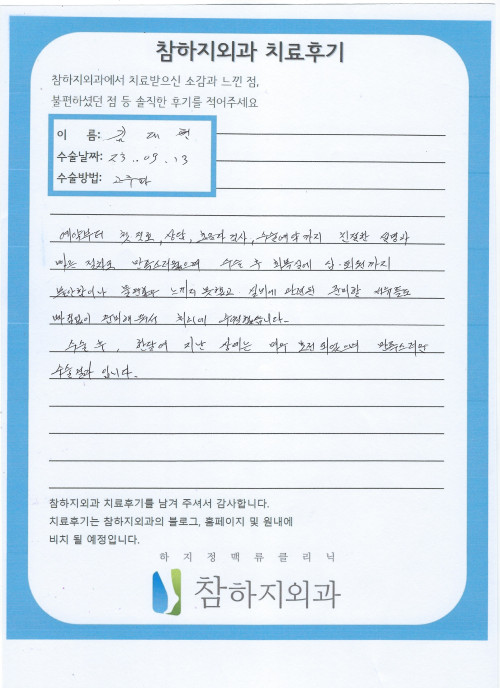 참하지외과 치료후기
참하지외과에서 치료받으신 소감과 느낀 점,
불편하셨던 점 등 솔직한 후기를 적어주세요
이 름: 김
수술날짜: 23. 09. 13
수술방법: 고주파
예약부터 첫 진료, 상담, 초음파 검사, 수술예약까지 친절한 설명과
빠른 절차로 만족스러웠으며 수술 후 회복실에 입·퇴원까지
불편함을 느끼지 못했고 실비에 관련된 준비할 서류들도
빠짐없이 준비해 주셔서 처리에 수월했습니다.
수술 후, 한달여 지난 상태는 매우 호전 되었으며 만족스러운
수술결과 입니다.
참하지외과 치료후기를 남겨 주셔서 감사합니다.
치료후기는 참하지외과의 블로그, 홈페이지 및 원내에
비치 될 예정입니다.
하지정맥류클리닉
참하지외과